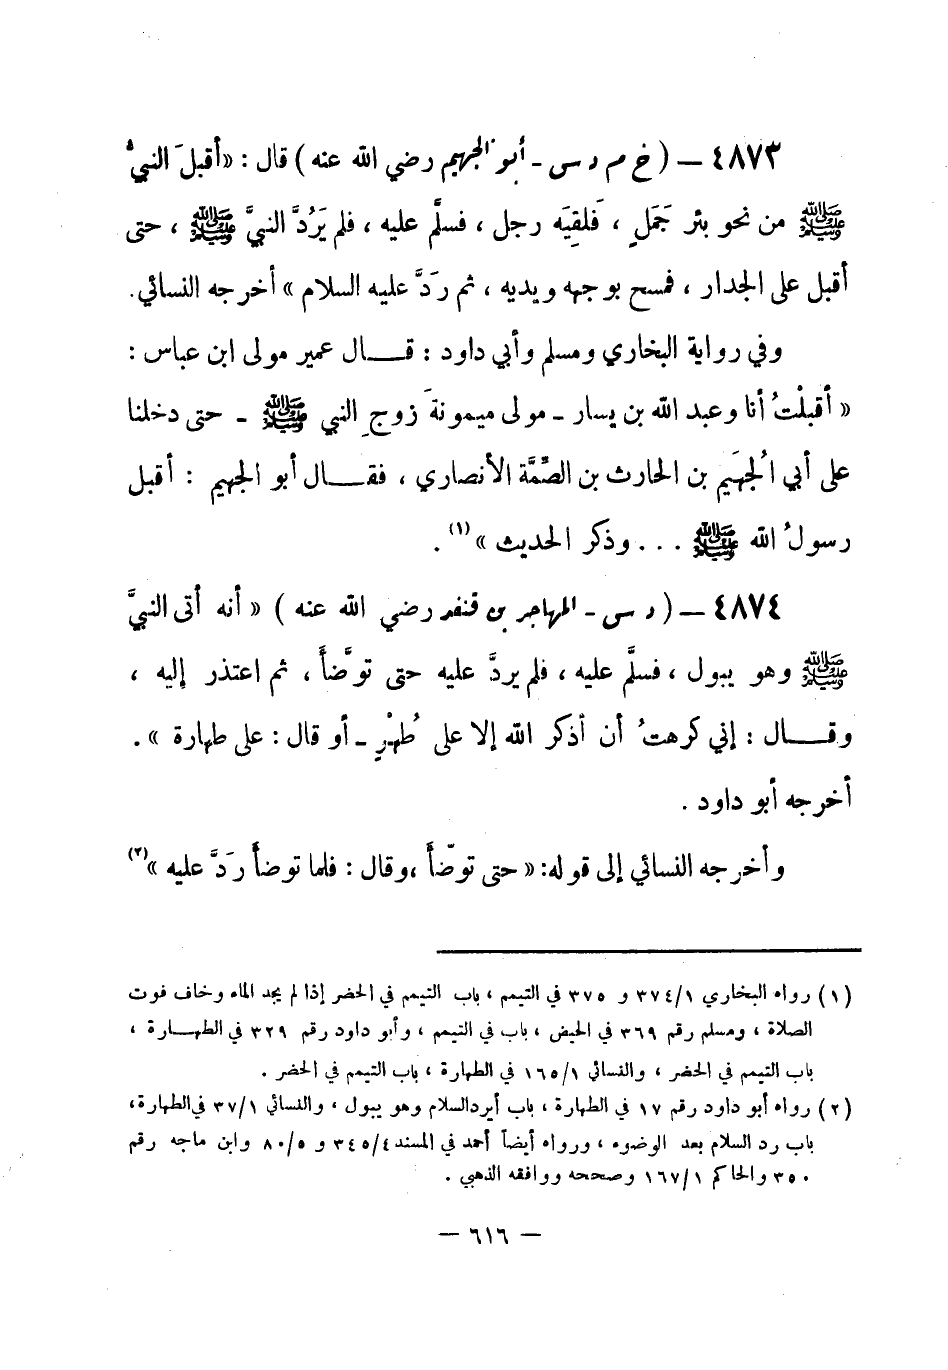 ٤٨٧٣ — ( خ م د س - أبو الجهيم رضي الله عنه ) قال : « أقبلَ النبيُّ
ﷺ من نحو بئر جَمَلٍ ، فَلَقِيَه رجل ، فسلَّم عليه ، فلم يَرُدَّ النبيَّ ﷺ ، حتى
أقبل على الجدار ، فمسح بوجهه ويديه ، ثم ردَّ عليه السلام » أخرجه النسائي .
وفي رواية البخاري ومسلم وأبي داود : قــال عمير مولى ابن عباس :
« أقبلْتُ أنا وعبد الله بن يسار - مولى ميمونةَ زوجِ النبي ﷺ - حتى دخلنا
على أبي الْجهَيم بن الحارث بن الصِّمَّة الأنصاري ، فقــال أبو الجهيم : أقبل
رسولُ الله ﷺ ... وذكر الحديث »(١) .
٤٨٧٤ — ( د س - المهاجر بن قنفذ رضي الله عنه ) « أنه أتى النبيَّ
ﷺ وهو يبول ، فسلَّم عليه ، فلم يردَّ عليه حتى توضَّأ ، ثم اعتذر إليه ،
وقــال : إني كرهتُ أن أذكر الله إلا على طُهْرٍ - أو قال : على طهارة » .
أخرجه أبو داود .
وأخرجه النسائي إلى قوله: « حتى توضَّأ ، وقال : فلما توضأ ردَّ عليه »(٢)
(١) رواه البخاري ٣٧٤/١ و ٣٧٥ في التيمم ، باب التيمم في الحضر إذا لم يجد الماء وخاف فوت
الصلاة ، ومسلم رقم ٣٦٩ في الحيض ، باب في التيمم ، وأبو داود رقم ٣٢٩ في الطهــارة ،
باب التيمم في الحضر ، والنسائي ١٦٥/١ في الطهارة ، باب التيمم في الحضر .
(٢) رواه أبو داود رقم ١٧ في الطهارة ، باب أيرد السلام وهو يبول ، والنسائي ٣٧/١ في الطهارة،
باب رد السلام بعد الوضوء ، ورواه أيضاً أحمد في المسند ٣٤٥/٤ و ٨٠/٥ وابن ماجه رقم
٣٥٠ والحاكم ١٦٧/١ وصححه ووافقه الذهبي .
— ٦١٦ —